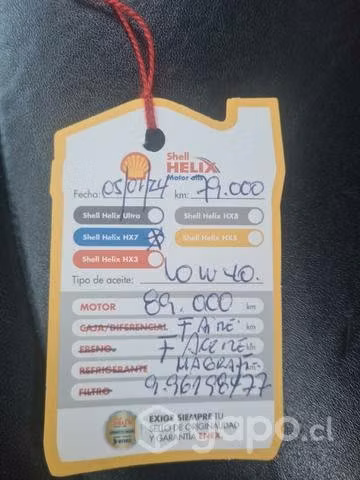 Shell
HELIX
Motor oils
Fecha: 05/01/24 km: 79.000
Shell Helix Ultra
Shell Helix HX8
Shell Helix HX7
Shell Helix HX5
Shell Helix HX3
Tipo de aceite: 10W40.
MOTOR 89.000 km
CAJA/DIFERENCIAL F. AIRE km
FRENO. F ACEITE km
REFRIGERANTE km
FILTRO
EXIGE SIEMPRE TU
SELLO DE ORIGINALIDAD
Y GARANTÍA ENEX.
yapo.cl